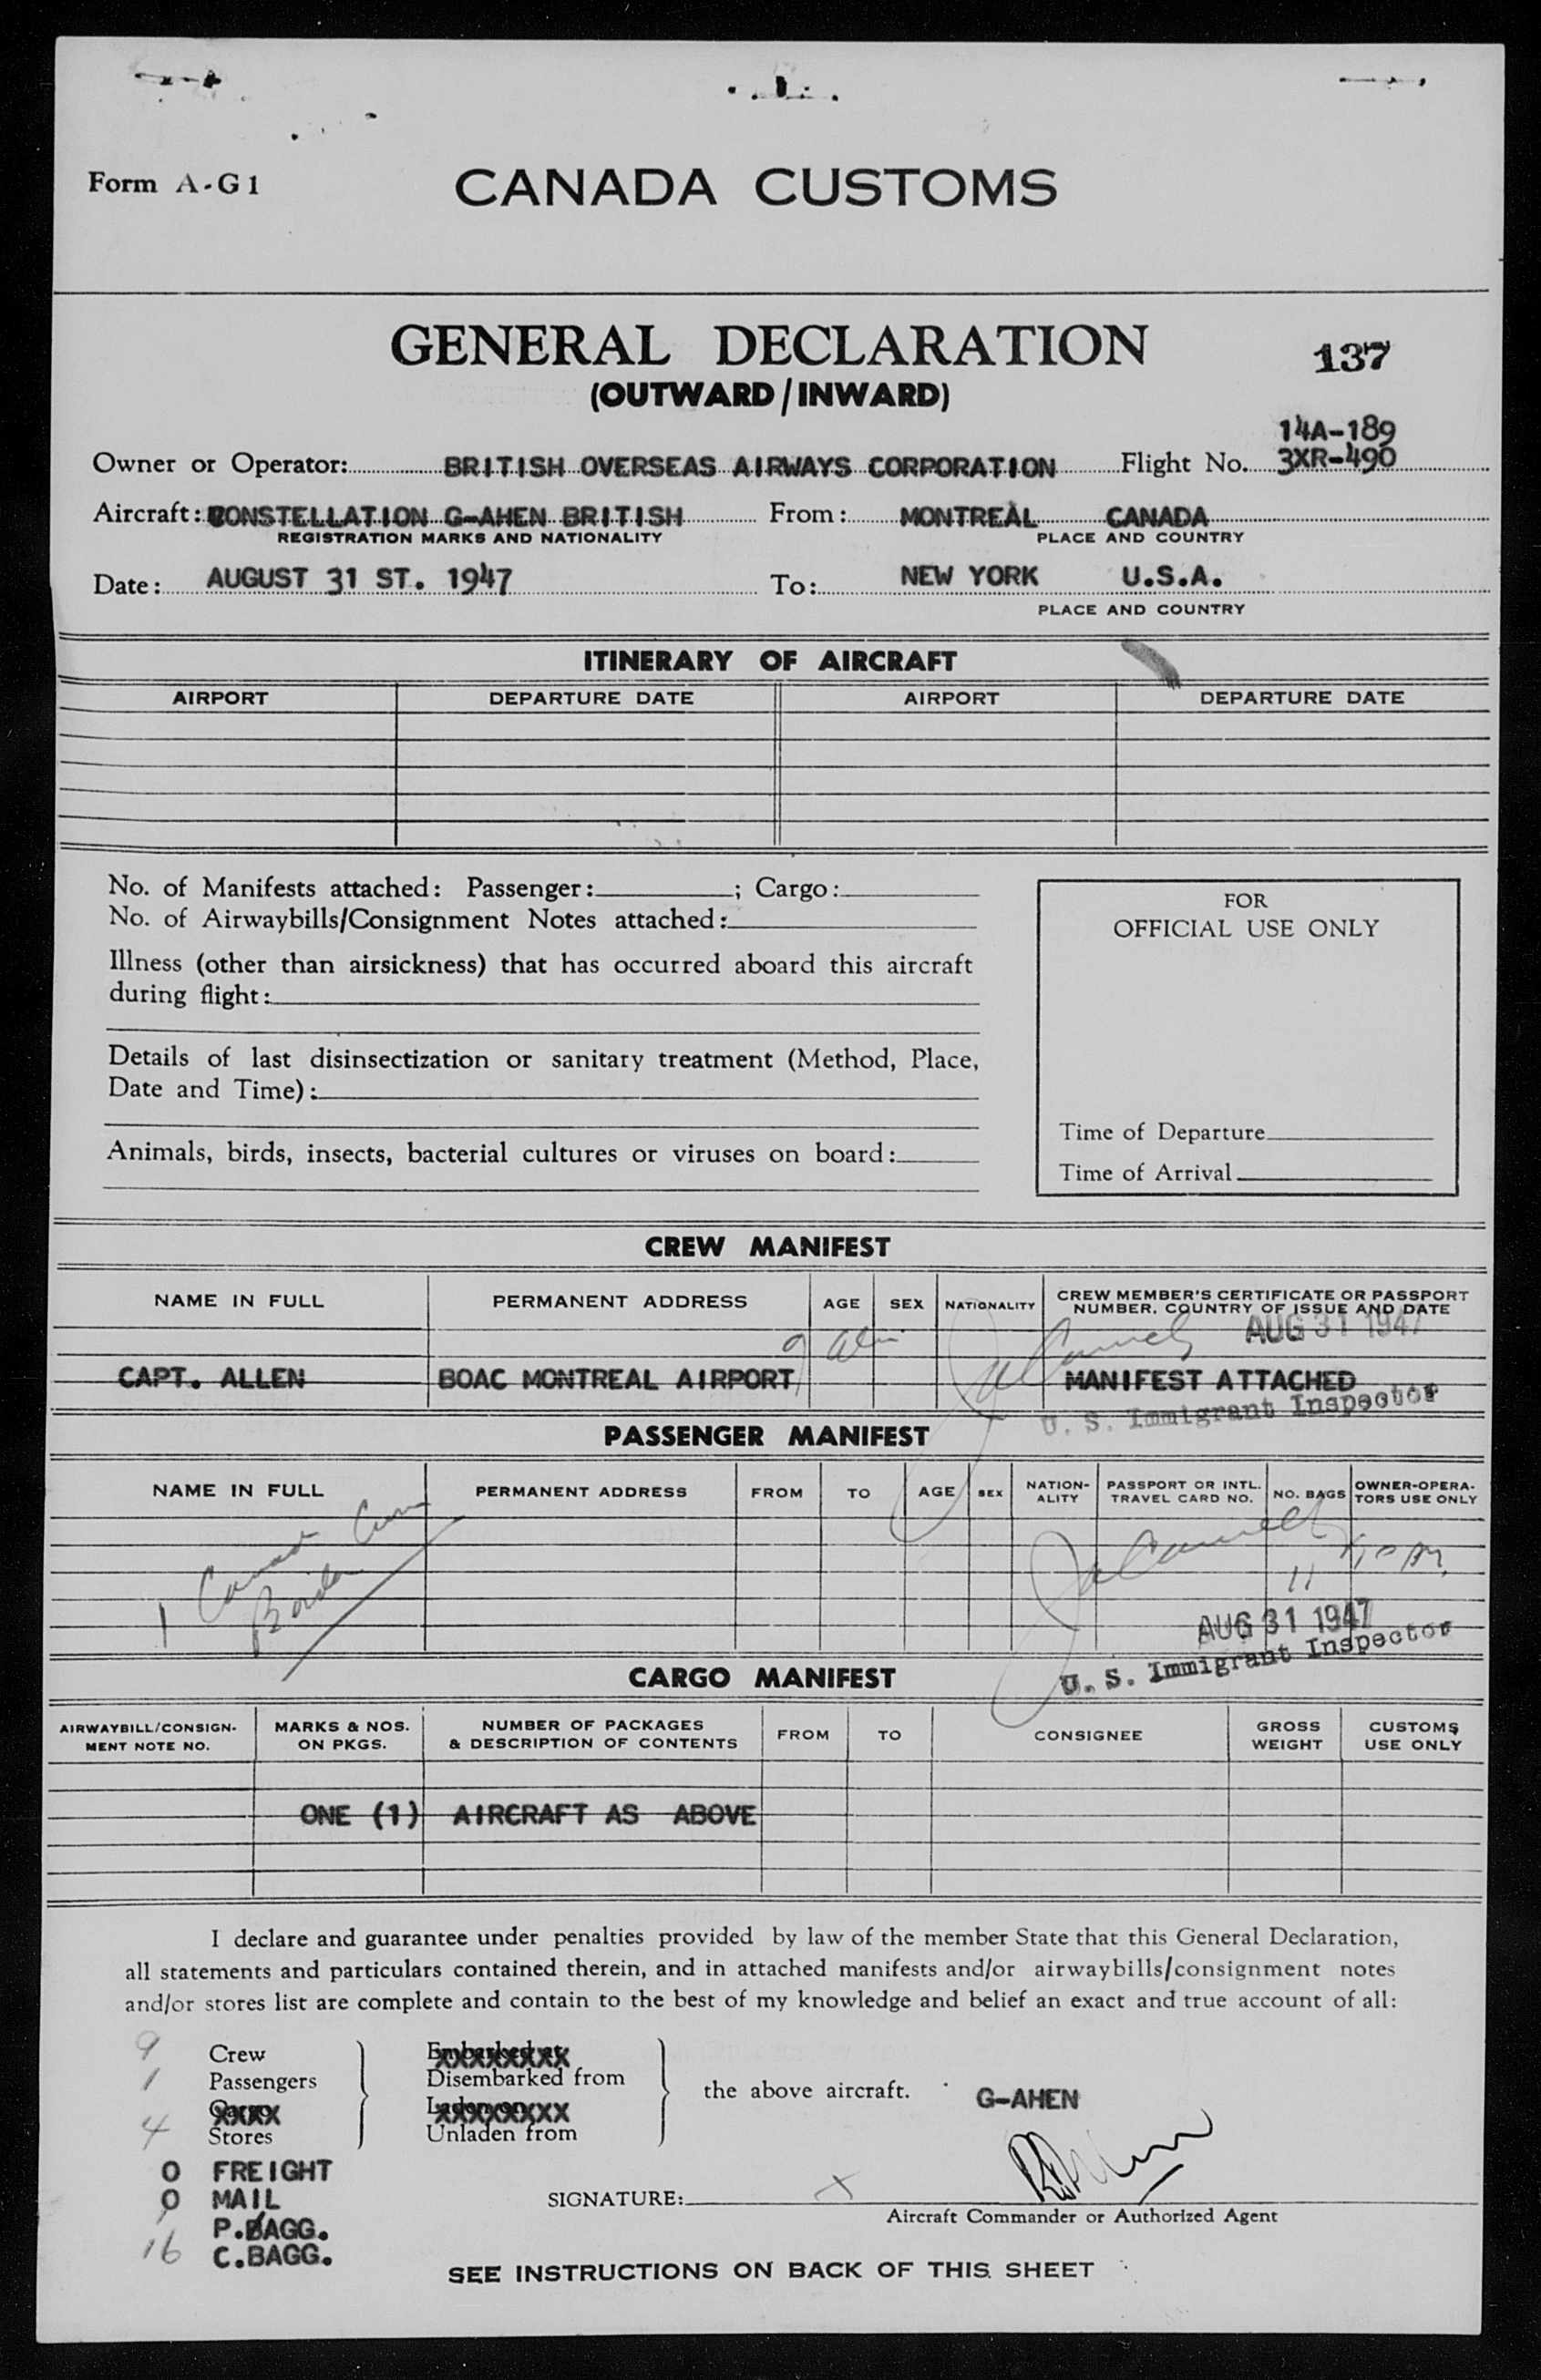 Form A-G1
CANADA CUSTOMS
GENERAL DECLARATION
137
(OUTWARD/INWARD)
14A-189
Owner or Operator: BRITISH OVERSEAS AIRWAYS CORPORATION Flight No. 3XR-490
Aircraft: CONSTELLATION G-AHEN BRITISH From: MONTREAL CANADA
REGISTRATION MARKS AND NATIONALITY PLACE AND COUNTRY
Date: AUGUST 31 ST. 1947 To: NEW YORK U.S.A.
PLACE AND COUNTRY
ITINERARY OF AIRCRAFT
AIRPORT DEPARTURE DATE AIRPORT DEPARTURE DATE
No. of Manifests attached: Passenger: ; Cargo:
No. of Airwaybills/Consignment Notes attached:
Illness (other than airsickness) that has occurred aboard this aircraft
during flight:
Details of last disinsectization or sanitary treatment (Method, Place,
Date and Time):
Animals, birds, insects, bacterial cultures or viruses on board:
FOR
OFFICIAL USE ONLY
Time of Departure
Time of Arrival
CREW MANIFEST
NAME IN FULL PERMANENT ADDRESS AGE SEX NATIONALITY CREW MEMBER'S CERTIFICATE OR PASSPORT
NUMBER, COUNTRY OF ISSUE AND DATE
9 AUG 31 1947
CAPT. ALLEN BOAC MONTREAL AIRPORT MANIFEST ATTACHED
U. S. Immigrant Inspector
PASSENGER MANIFEST
NAME IN FULL PERMANENT ADDRESS FROM TO AGE SEX NATION- PASSPORT OR INTL. NO. BAGS OWNER-OPERA-
ALITY TRAVEL CARD NO. TORS USE ONLY
1 Canad
Border
11
AUG 31 1947
U. S. Immigrant Inspector
CARGO MANIFEST
AIRWAYBILL/CONSIGN- MARKS & NOS. NUMBER OF PACKAGES FROM TO CONSIGNEE GROSS CUSTOMS
MENT NOTE NO. ON PKGS. & DESCRIPTION OF CONTENTS WEIGHT USE ONLY
ONE (1) AIRCRAFT AS ABOVE
I declare and guarantee under penalties provided by law of the member State that this General Declaration,
all statements and particulars contained therein, and in attached manifests and/or airwaybills/consignment notes
and/or stores list are complete and contain to the best of my knowledge and belief an exact and true account of all:
9 Crew Embarked at
1 Passengers Disembarked from the above aircraft. G-AHEN
Cargo Laden on
4 Stores Unladen from
0 FREIGHT
0 MAIL
SIGNATURE: X
P.BAGG. Aircraft Commander or Authorized Agent
16 C.BAGG.
SEE INSTRUCTIONS ON BACK OF THIS SHEET